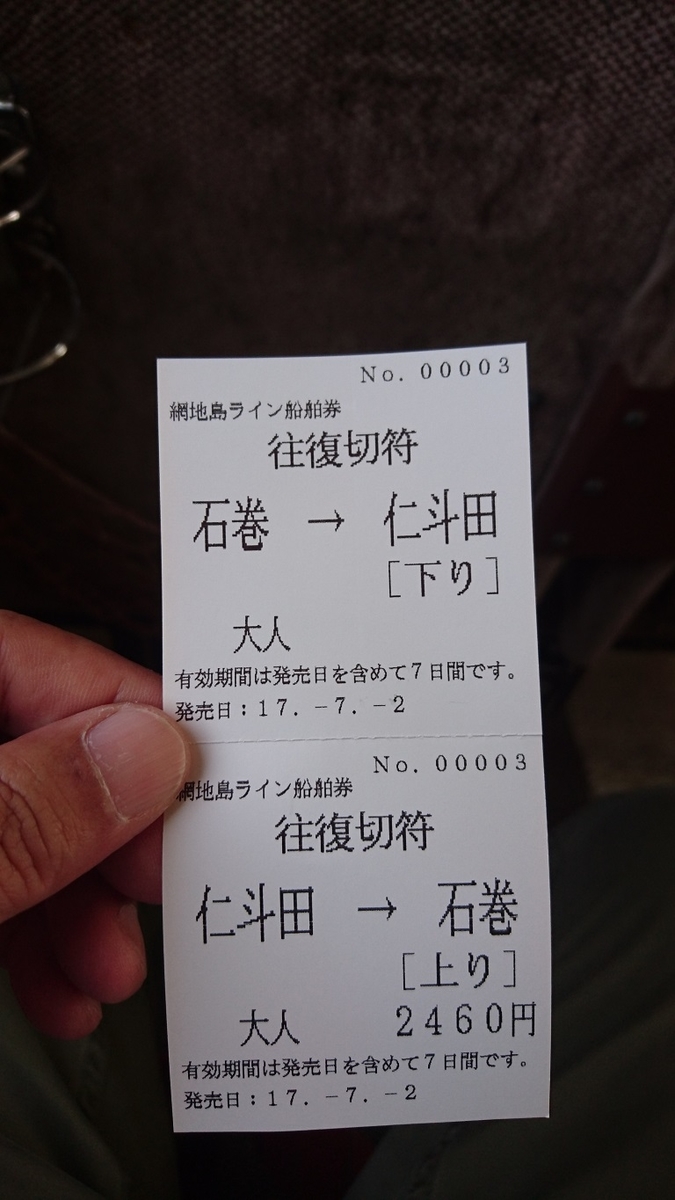 No.00003
網地島ライン船舶券
往復切符
石巻 → 仁斗田
[下り]
大人
有効期間は発売日を含めて7日間です。
発売日:17.-7.-2
No.00003
網地島ライン船舶券
往復切符
仁斗田 → 石巻
[上り]
大人 2460円
有効期間は発売日を含めて7日間です。
発売日:17.-7.-2